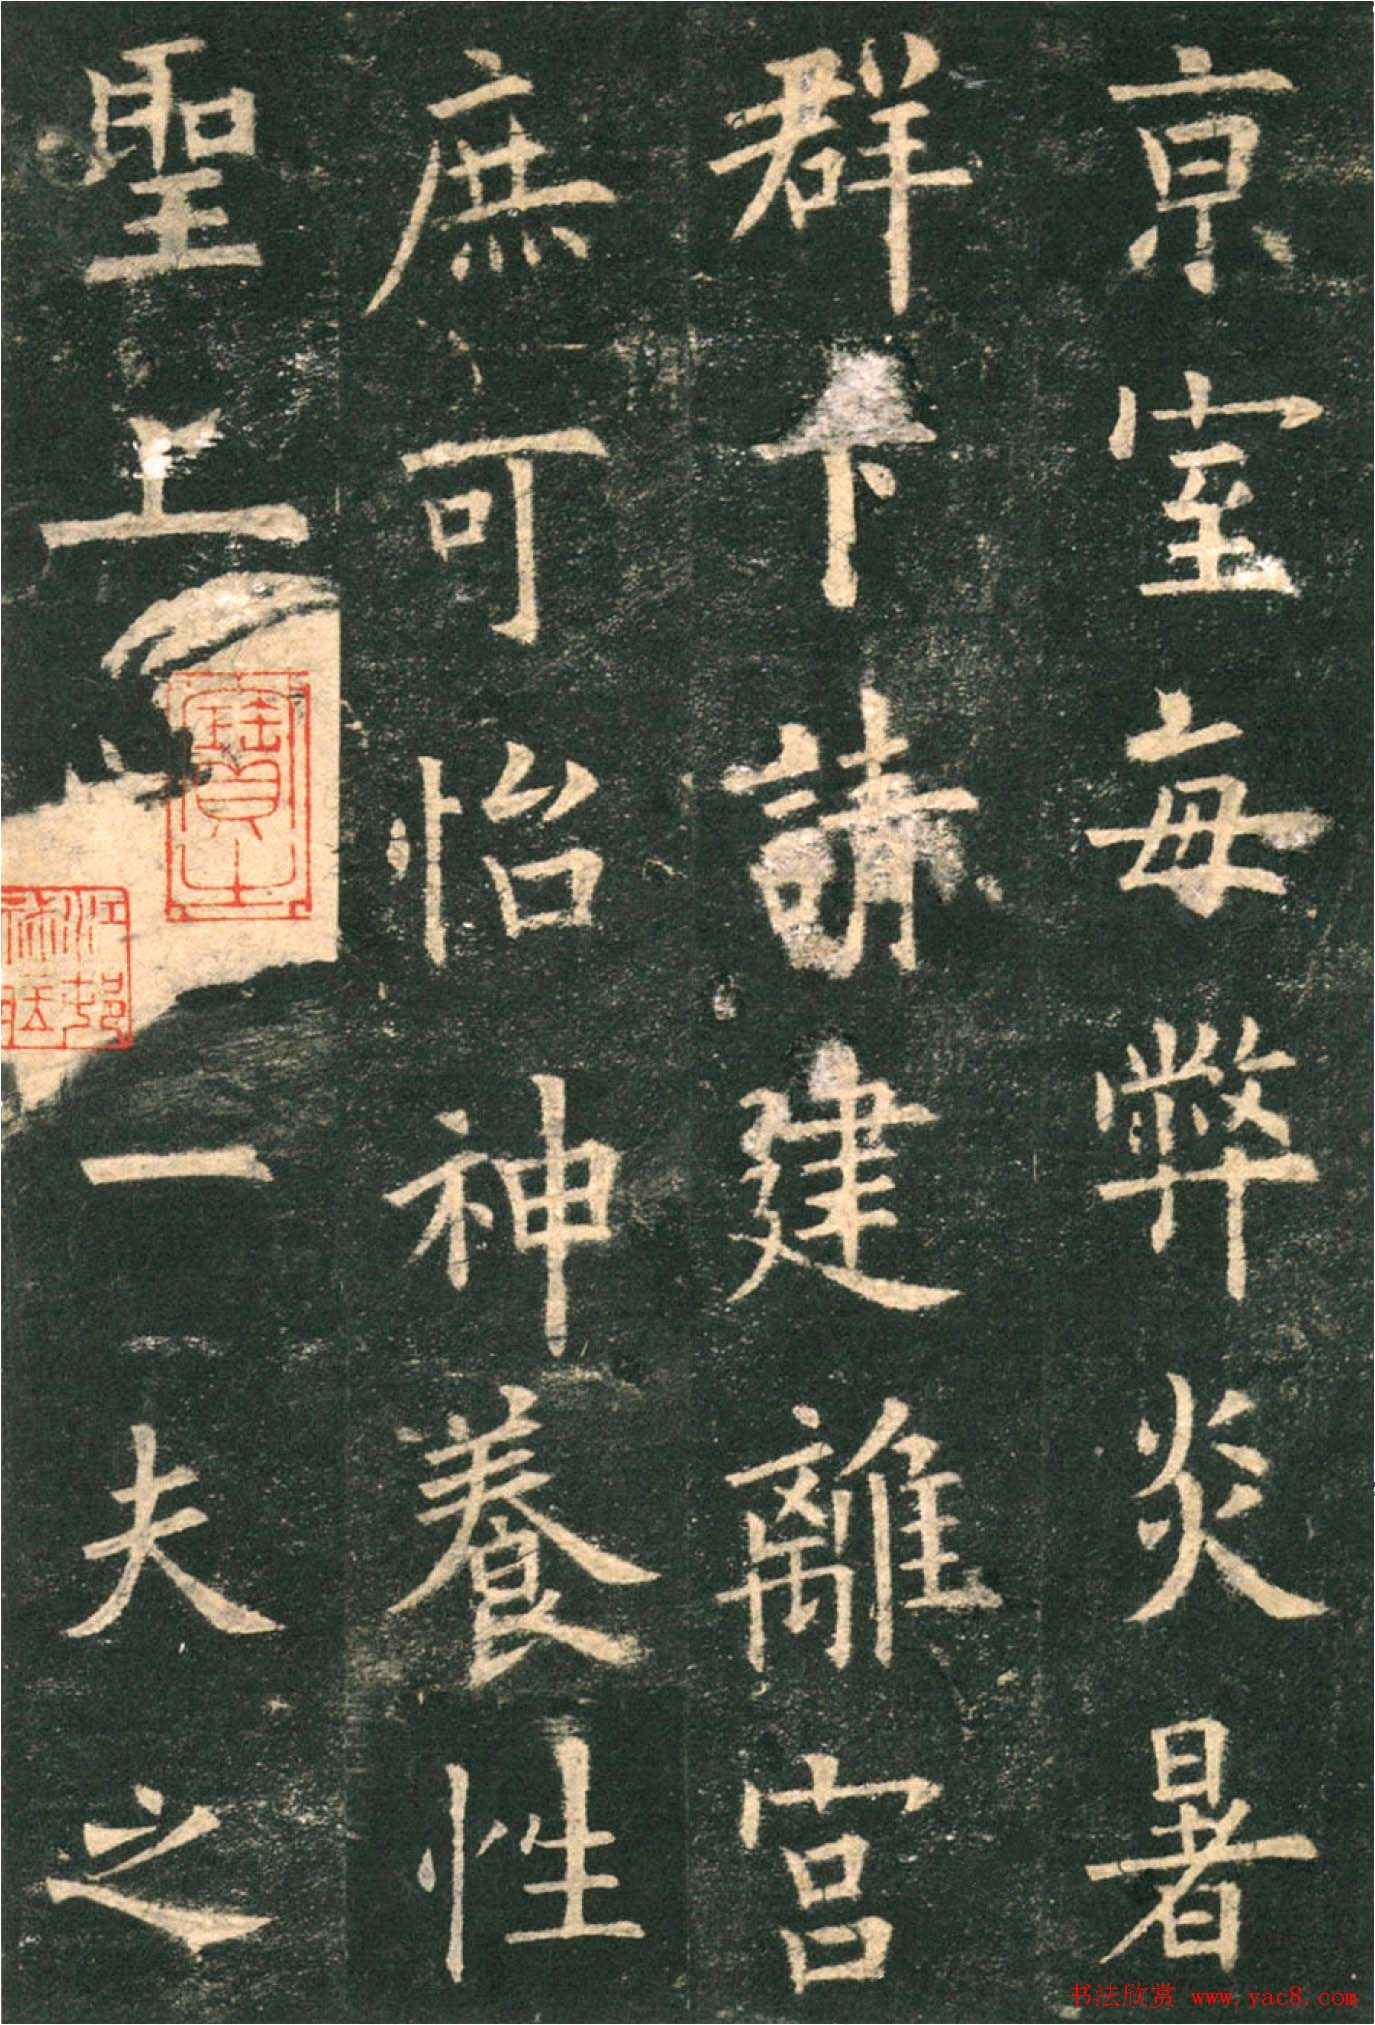 京室每弊炎暑
群下請建離宮
庶可怡神養性
聖上一夫之
書法欣赏 www.yac8.com